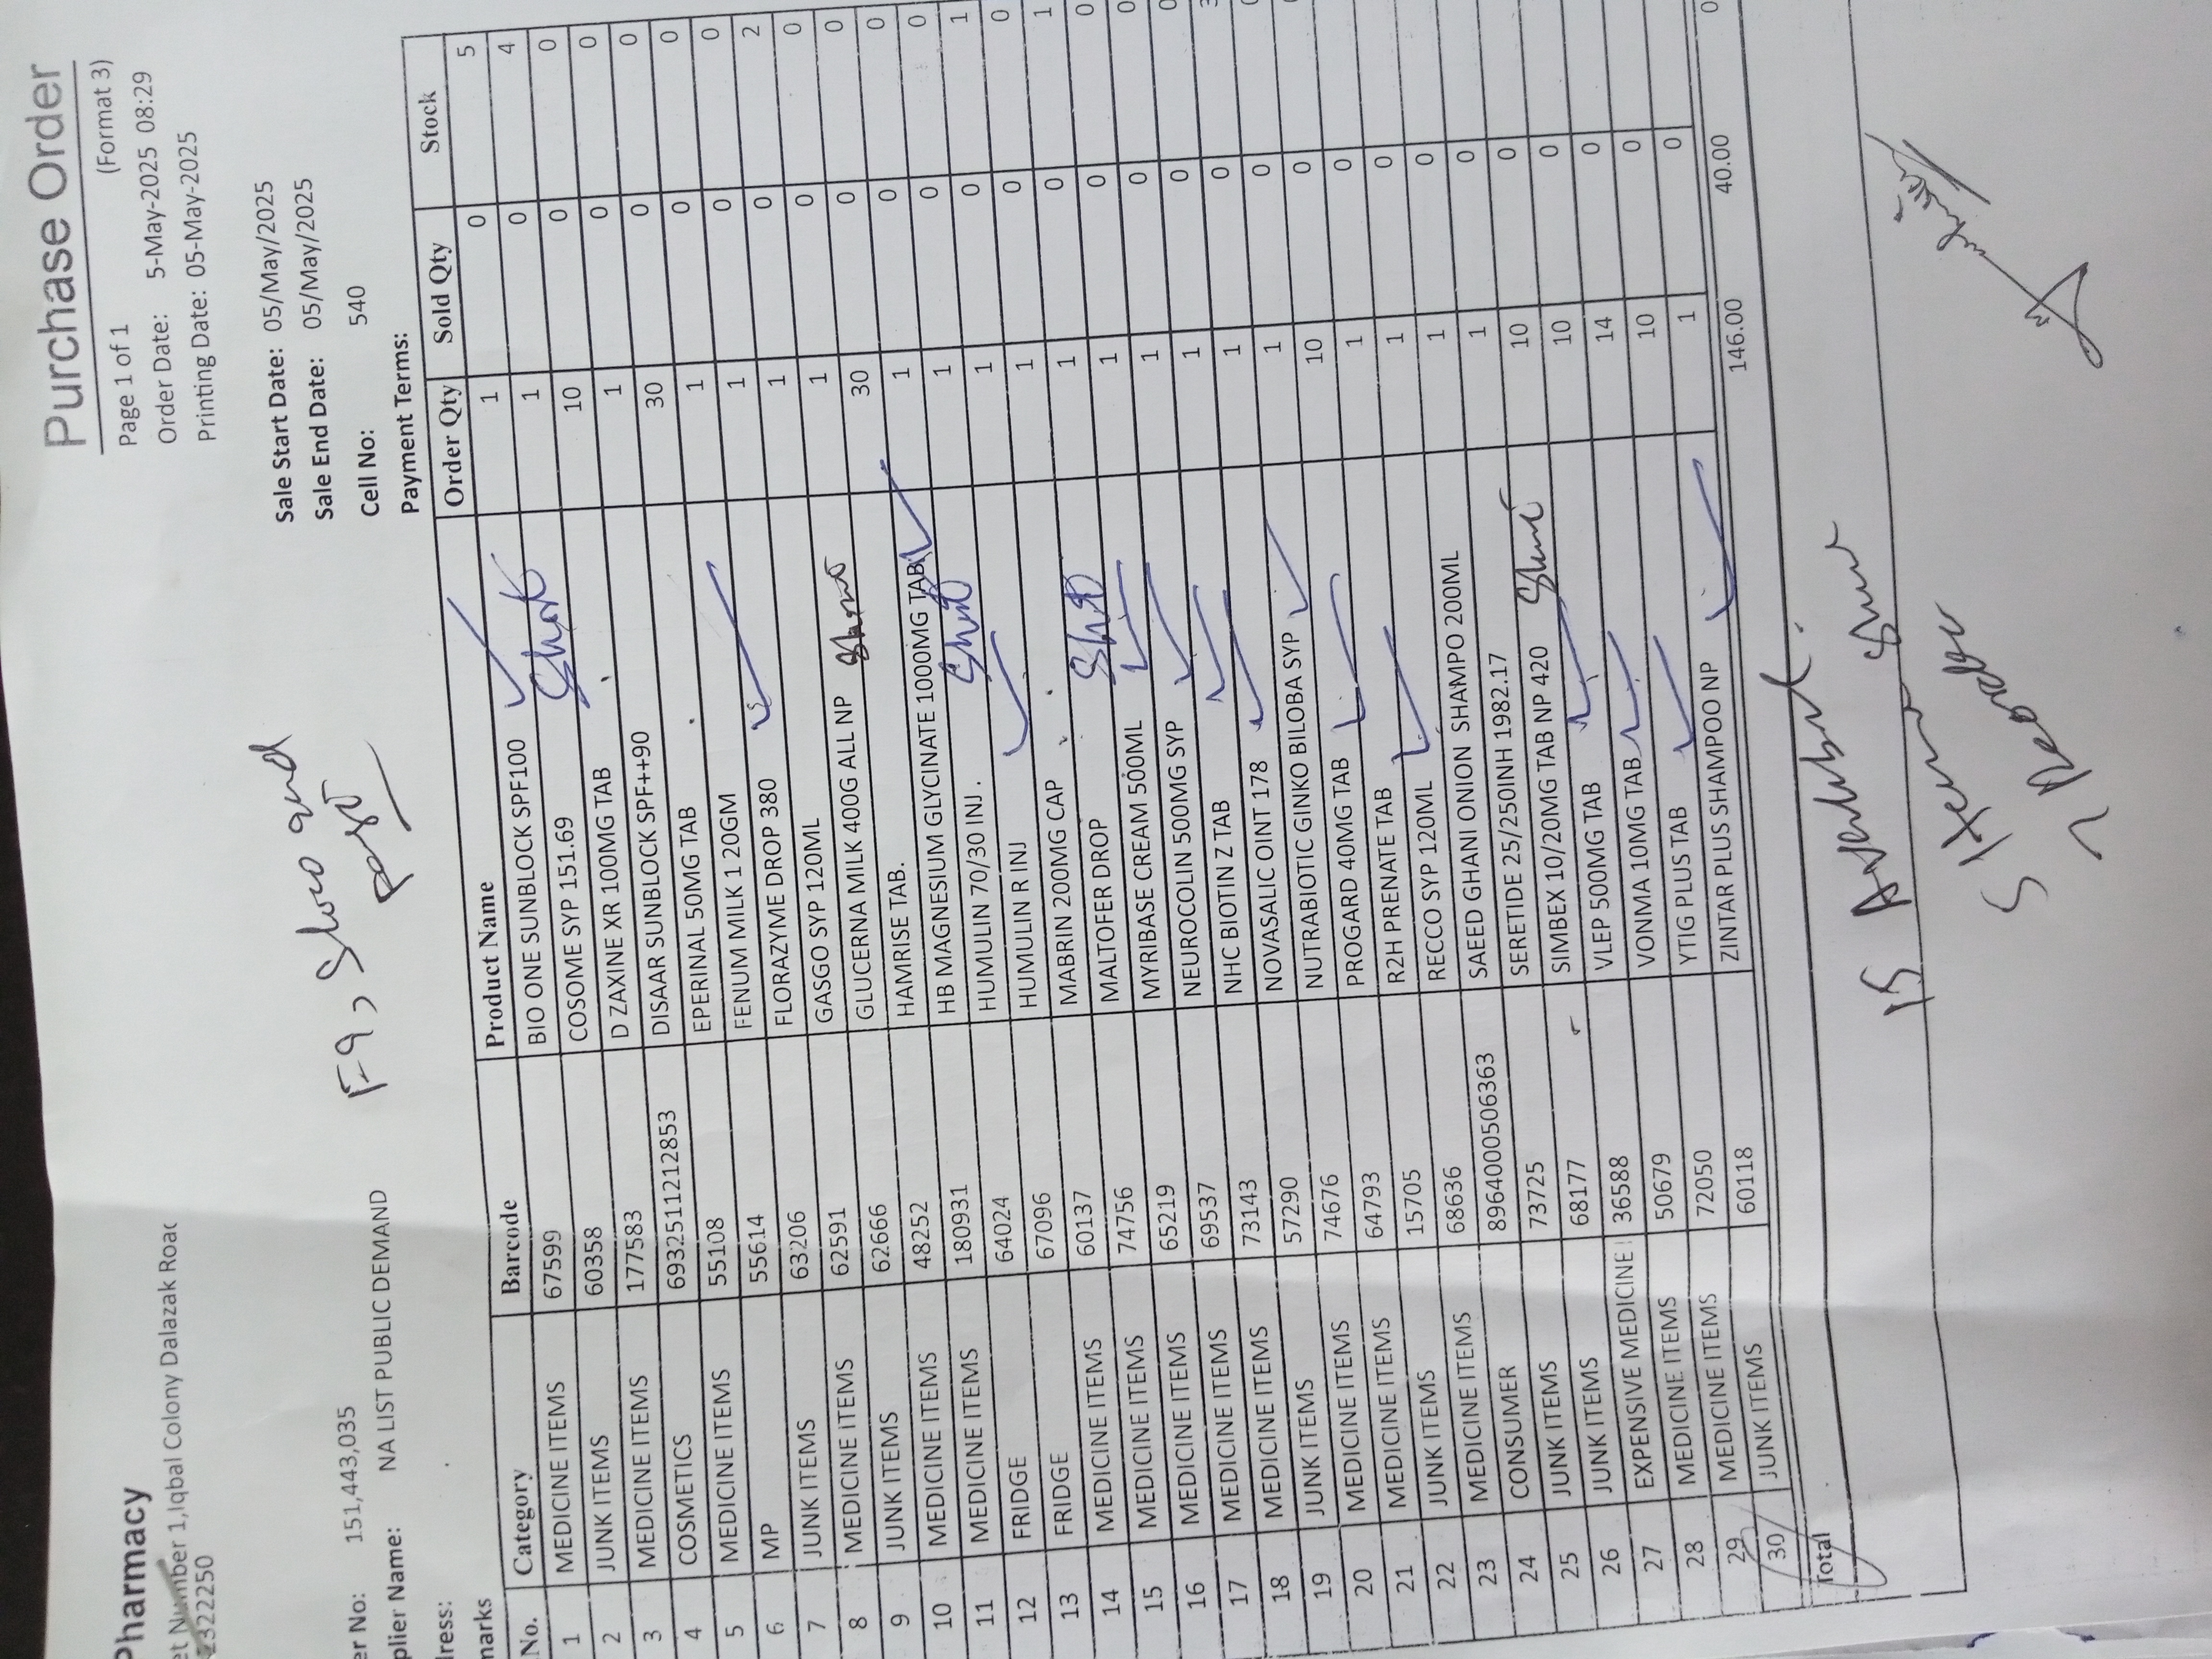 Purchase Order
Pharmacy
Page 1 of 1 (Format 3)
Number 1,Iqbal Colony Dalazak Road
Order Date: 5-May-2025 08:29
2322250
Printing Date: 05-May-2025
Sale Start Date: 05/May/2025
Sale End Date: 05/May/2025
er No: 151,443,035
Cell No: 540
plier Name: NA LIST PUBLIC DEMAND
F9, Short and
dress:
Payment Terms:
marks
No. Category Barcode Product Name Order Qty Sold Qty Stock
1 MEDICINE ITEMS 67599 BIO ONE SUNBLOCK SPF100 1 0 5
2 JUNK ITEMS 60358 COSOME SYP 151.69 Short 1 0 4
3 MEDICINE ITEMS 177583 D ZAXINE XR 100MG TAB 10 0 0
4 COSMETICS 6932511212853 DISAAR SUNBLOCK SPF++90 1 0 0
5 MEDICINE ITEMS 55108 EPERINAL 50MG TAB 30 0 0
6 MP 55614 FENUM MILK 1 20GM 1 0 0
7 JUNK ITEMS 63206 FLORAZYME DROP 380 1 0 0
8 MEDICINE ITEMS 62591 GASGO SYP 120ML 1 0 2
9 JUNK ITEMS 62666 GLUCERNA MILK 400G ALL NP Short 1 0 0
10 MEDICINE ITEMS 48252 HAMRISE TAB. 30 0 0
11 MEDICINE ITEMS 180931 HB MAGNESIUM GLYCINATE 1000MG TAB 1 0 0
12 FRIDGE 64024 HUMULIN 70/30 INJ. . Short 1 0 0
13 FRIDGE 67096 HUMULIN R INJ 1 0 1
14 MEDICINE ITEMS 60137 MABRIN 200MG CAP 1 0 0
15 MEDICINE ITEMS 74756 MALTOFER DROP Short 1 0 1
16 MEDICINE ITEMS 65219 MYRIBASE CREAM 500ML 1 0 0
17 MEDICINE ITEMS 69537 NEUROCOLIN 500MG SYP 1 0 0
18 MEDICINE ITEMS 73143 NHC BIOTIN Z TAB 1 0 0
19 JUNK ITEMS 57290 NOVASALIC OINT 178 1 0 3
20 MEDICINE ITEMS 74676 NUTRABIOTIC GINKO BILOBA SYP 1 0 0
21 MEDICINE ITEMS 64793 PROGARD 40MG TAB 10 0 0
22 JUNK ITEMS 15705 R2H PRENATE TAB 1 0
23 MEDICINE ITEMS 68636 RECCO SYP 120ML 1 0
24 CONSUMER 8964000506363 SAEED GHANI ONION SHAMPO 200ML 1 0
25 JUNK ITEMS 73725 SERETIDE 25/250INH 1982.17 1 0
26 JUNK ITEMS 68177 SIMBEX 10/20MG TAB NP 420 Short 10 0
27 EXPENSIVE MEDICINE 36588 VLEP 500MG TAB 10 0
28 MEDICINE ITEMS 50679 VONMA 10MG TAB 14 0
29 MEDICINE ITEMS 72050 YTIG PLUS TAB 10 0
30 JUNK ITEMS 60118 ZINTAR PLUS SHAMPOO NP 1 0
Total 146.00 40.00 0